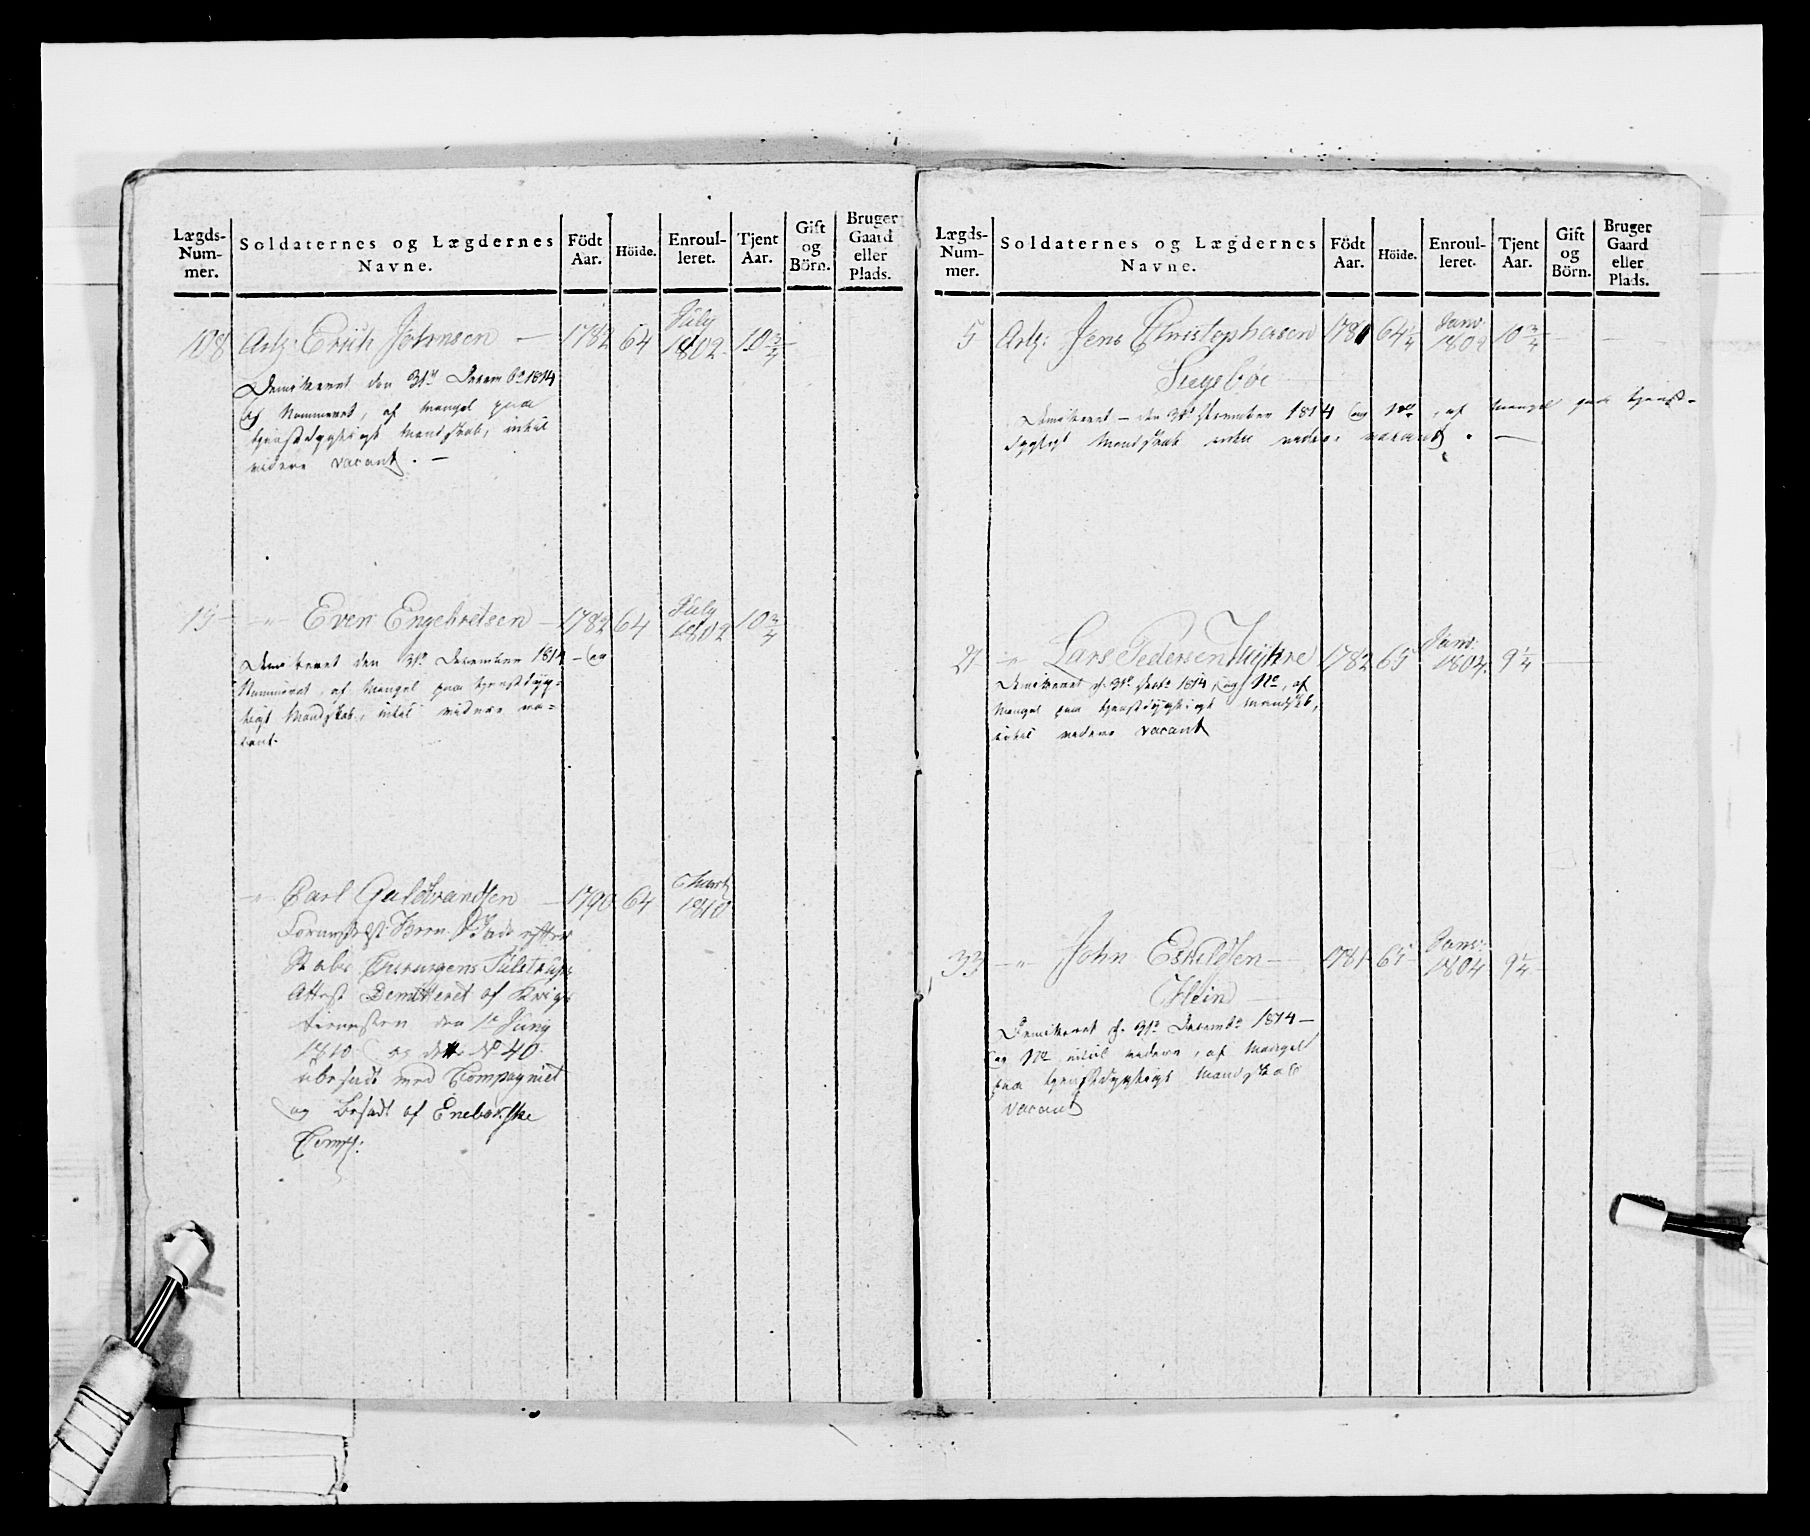 Lægds-
Num-
mer.
Soldaternes og Lægdernes
Navne.
Födt
Aar.
Höide.
Enroul-
leret.
Tjent
Aar.
Gift
og
Börn.
Bruger
Gaard
eller
Plads.
108 Erich Johnsen — 1782 64 July 1802 10 3/4
Demitteret den 31te Decembr 1814
og Nummeret, af Mangel paa
tjenstdygtigt Mandskab, intil
videre vacant. —
Even Engebretsen — 1782 64 July 1802 10 3/4
Demitteret den 31te December 1814 — og
Nummeret, af Mangel paa tjenstdyg-
tigt Mandskab, intil videre va-
cant.
" Carl Guldbrandsen — 1790 64 1810
efter
Attest Demitteret af Krigs
tienesten den 1te Juny
1810 og dette No 40
Compagniet
og besadt af Enebakske
Comp:
Lægds-
Num-
mer.
Soldaternes og Lægdernes
Navne.
Födt
Aar.
Höide.
Enroul-
leret.
Tjent
Aar.
Gift
og
Börn.
Bruger
Gaard
eller
Plads.
5 Jens Christophersen 1781 64 1/4 Janv: 1802 10 3/4
Demitteret — den 31te December 1814 og No, af Mangel paa tjenst-
dygtigt Mandskab intil videre vacant. —
21 " Lars Pedersen 1782 65 Janv: 1804 9 1/4
Demitteret d. 31te Decbr 1814, og No, af
Mangel paa tjenstdygtigt Mandskab,
intil videre vacant
33 " John Eskildsen — 1781 65 Janv: 1804 9 1/4
Demitteret d. 31te Decembr 1814 —
og No intil videre, af Mangel
paa tjenstdygtigt Mandskab
vacant